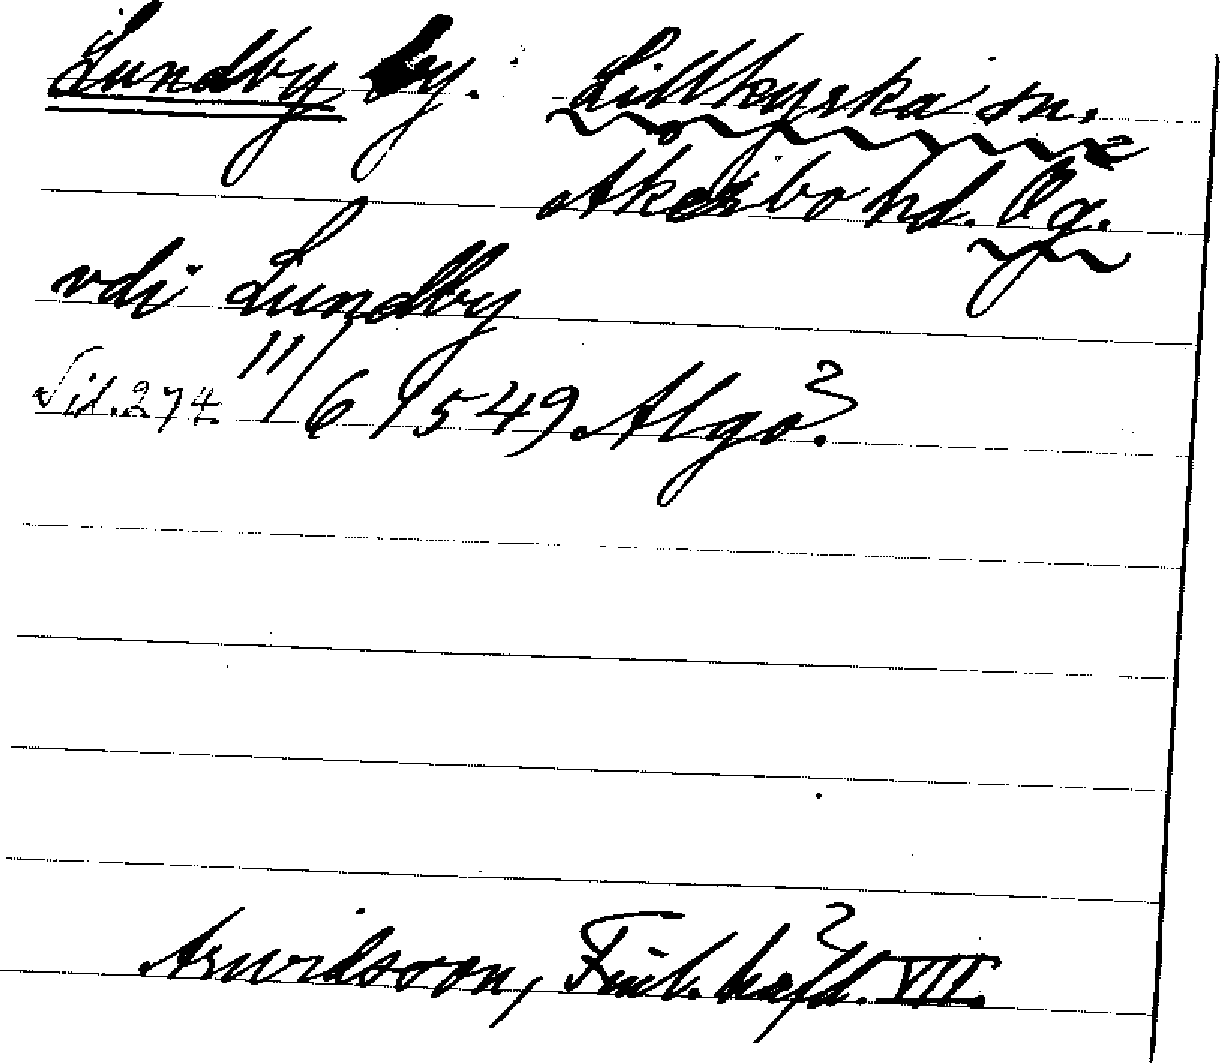 Lundby by. Lillkyrka sn.
Åkerbo hd. Ög.
vdi Lundby
Sid. 274. 11/6 1549 Älgö.
Arwidsson, Finl. häfd. VII.